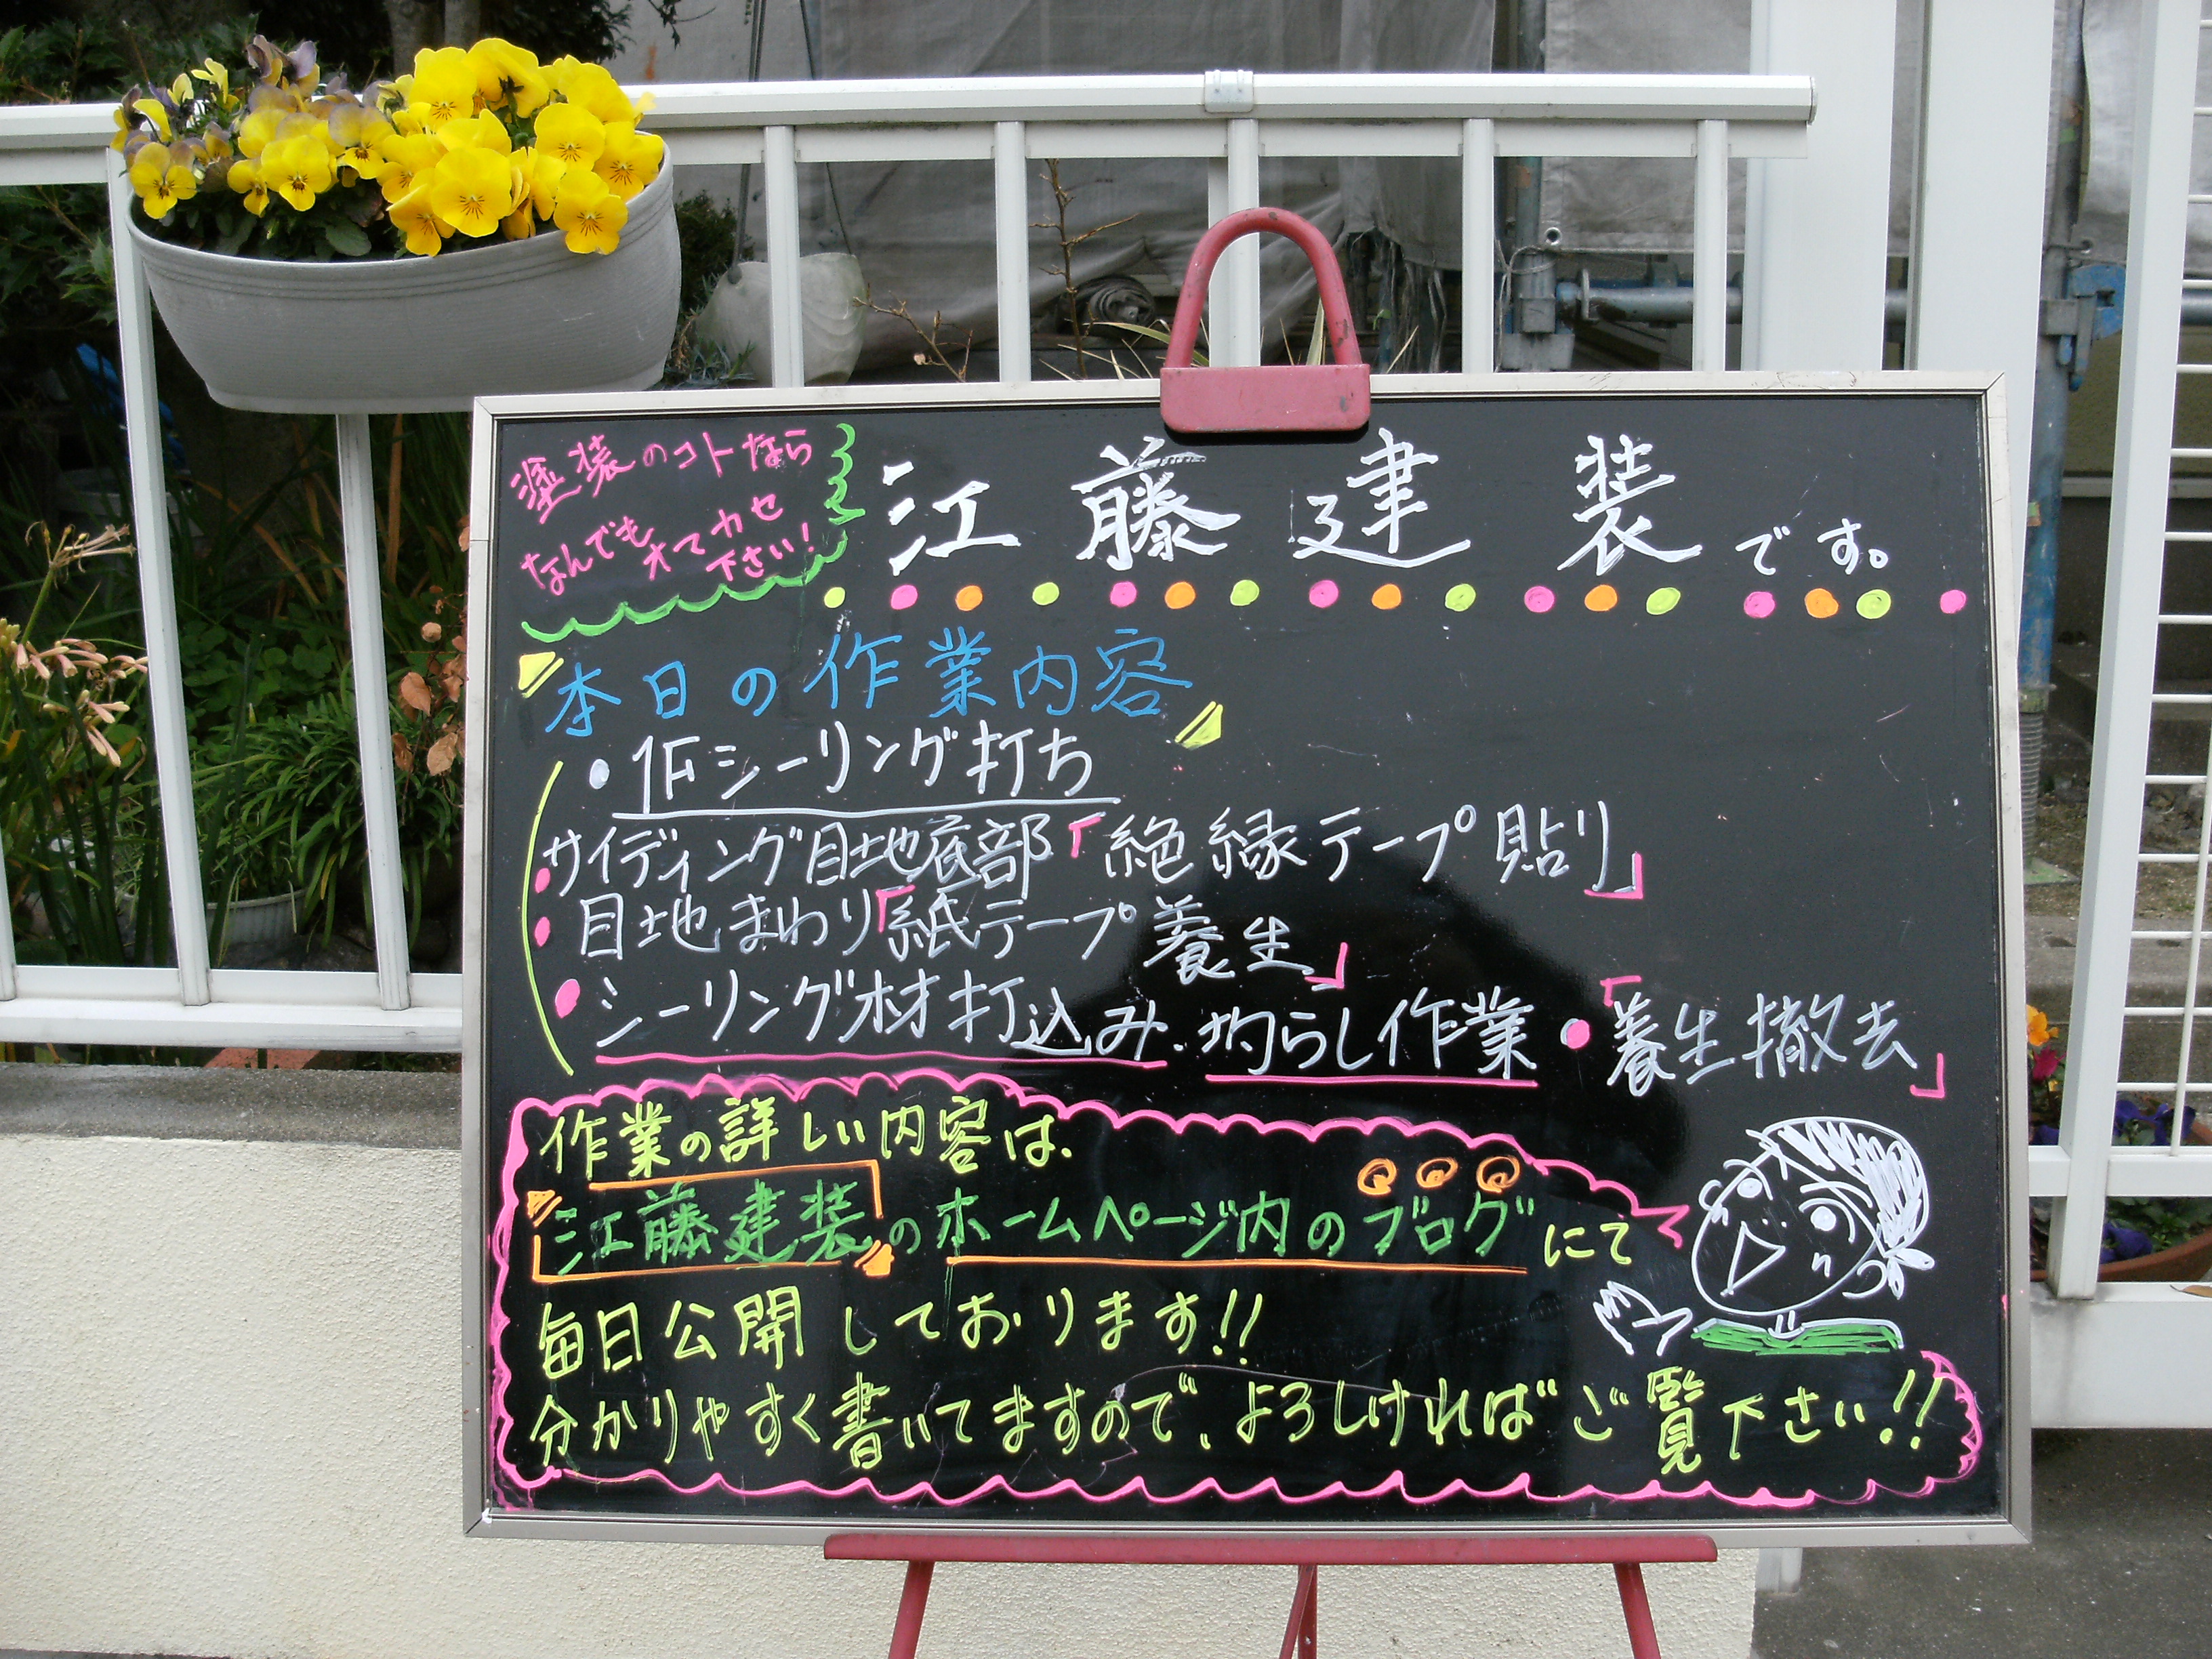 塗装のコトなら
なんでも
オマカセ
下さい!
江藤建装です。
本日の作業内容
・1Fシーリング打ち
サイディング目地底部「絶縁テープ貼り」
目地まわり「紙テープ養生」
シーリング材打込み.均らし作業・「養生撤去」
作業の詳しい内容は、
江藤建装のホームページ内のブログにて
毎日公開しております!!
分かりやすく書いてますので、よろしければご覧下さい!!